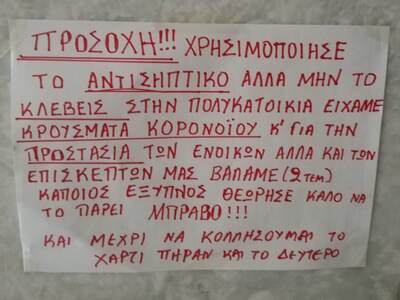 ΠΡΟΣΟΧΗ!!! ΧΡΗΣΙΜΟΠΟΙΗΣΕ
ΤΟ ΑΝΤΙΣΗΠΤΙΚΟ ΑΛΛΑ ΜΗΝ ΤΟ
ΚΛΕΒΕΙΣ ΣΤΗΝ ΠΟΛΥΚΑΤΟΙΚΙΑ ΕΙΧΑΜΕ
ΚΡΟΥΣΜΑΤΑ ΚΟΡΟΝΟΪΟΥ Κ' ΓΙΑ ΤΗΝ
ΠΡΟΣΤΑΣΙΑ ΤΩΝ ΕΝΟΙΚΩΝ ΑΛΛΑ ΚΑΙ ΤΩΝ
ΕΠΙΣΚΕΠΤΩΝ ΜΑΣ ΒΑΛΑΜΕ (2 ΤΕΜ)
ΚΑΠΟΙΟΣ ΕΞΥΠΝΟΣ ΘΕΩΡΗΣΕ ΚΑΛΟ ΝΑ
ΤΟ ΠΑΡΕΙ ΜΠΡΑΒΟ!!!
ΚΑΙ ΜΕΧΡΙ ΝΑ ΚΟΛΛΗΣΟΥΜΑΙ ΤΟ
ΧΑΡΤΙ ΠΗΡΑΝ ΚΑΙ ΤΟ ΔΕΥΤΕΡΟ